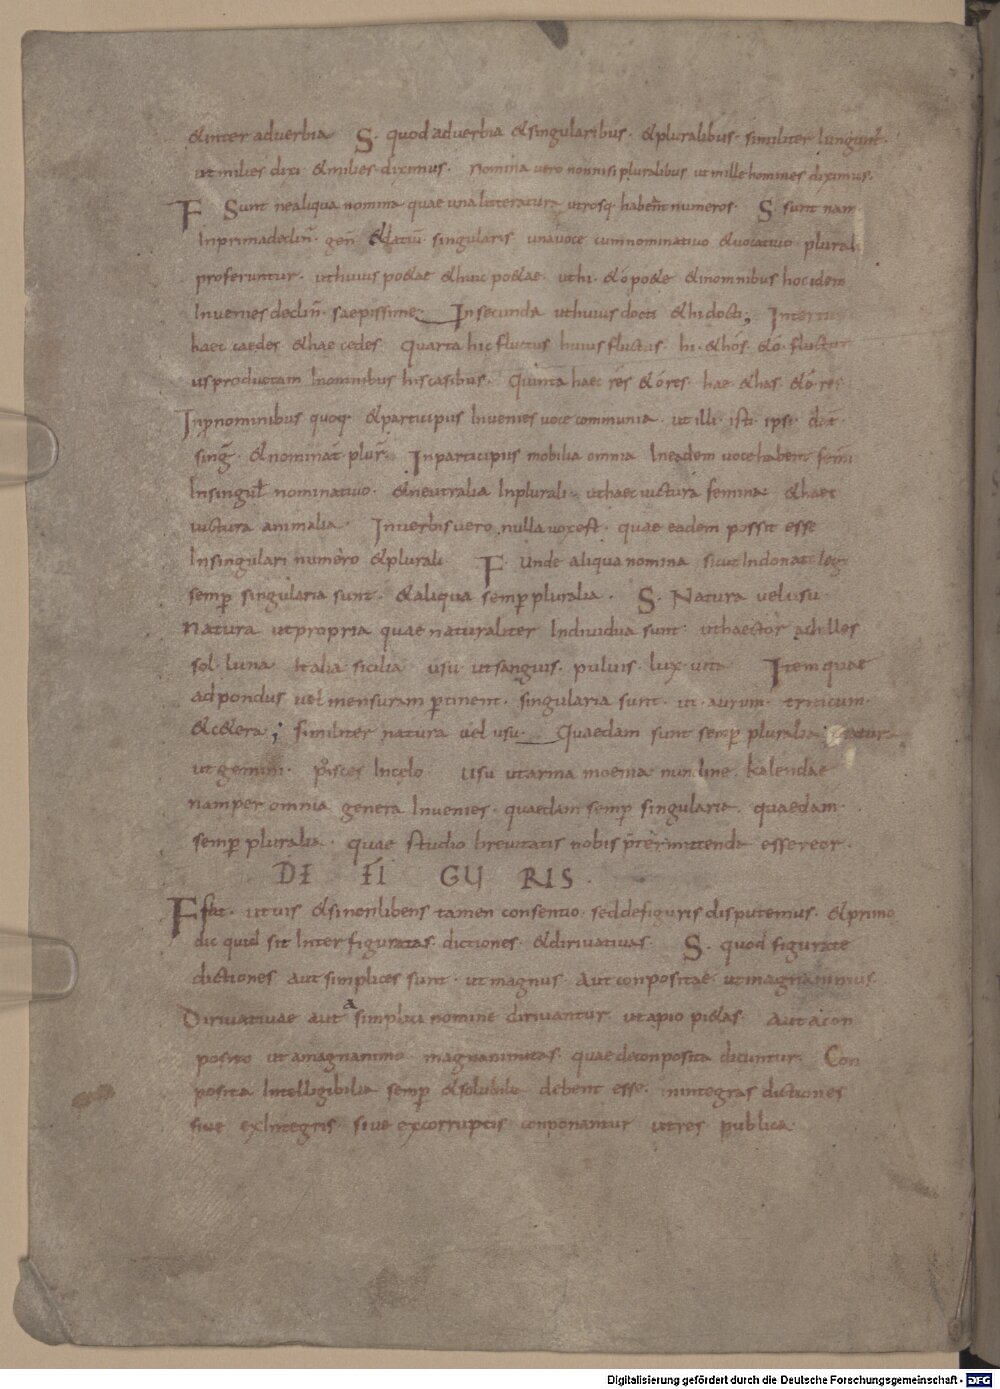 & inter adverbia S. quod adverbia & singularibus · & pluralibus · similiter Iungunt ·
ut milies dixi & milies · diximus · Nomina vero nonnisi pluralibus ut mille homines diximus ·
F Sunt ne aliqua nomina quae una litteratura utrosq· habent numeros · S sunt nam
In prima declin̄ · gen̄ & datiū · singularis una voce cum nominativo & vocativo plurali
proferuntur · ut huius poetae & huic poetae · ut hi · & o poetae & in omnibus hoc idem
Invenies declin̄ · saepissime · In secunda ut huius docti & hi docti ; In tertia
haec caedes & hae cedes quarta hic fluctus huius fluctus · hi · & hos · & o · fluctus
us productam In omnibus his casibus · Quinta haec res & o res · hae · & has · & o res
In p̄nominibus quoq· & participiis Invenies voce communia · ut illi · isti · ipsi · dat̄
sinḡ · & nominat̄ plur̄ · In participiis mobilia omnia In eadem voce habent femī
In singul̄ nominativo · & neutralia In plurali · ut haec victura femina & haec
victura animalia · In verbis vero nulla vox est · quae eadem possit esse
In singulari numero & plurali F Unde aliqua nomina sicut In donat legi
semp̄ singularia sunt · & aliqua semp̄ pluralia · S. Natura vel usu
Natura ut propria quae naturaliter Individua sunt · ut haector achilles
sol · luna Italia sicilia usu ut sanguis · pulvis · lux · vita Item quae
ad pondus vel mensuram p̄tinent · singularia sunt · ut · aurum · triticum ·
& c&era ; similiter natura vel usu · Quaedam sunt semp̄ pluralia natura
ut gemini · pisces In celo usu ut arma moenia nundine · kalendae
nam per omnia genera Invenies · quaedam semp̄ singularia quaedam ·
semp̄ pluralia · quae studio brevitatis nobis p̄termittenda esse reor ·
DE FI GU RIS ·
F fat · ut vis & si non libens tamen consentio · sed de figuris disputemus · & primo
dic quid sit Inter figuratas · dictiones · & dirivativas · S. quod figurate
dictiones aut simplices sunt · ut magnus · Aut conpositae ut magnanimus ·
Dirivativae aut a simplici nomine dirivantur ut a pio pi&as · Aut a con
posito ut a magnanimo magnanimitas · quae deconposita dicuntur · Con
posita Intelligibilia semp̄ & solubilia debent esse · in integras dictiones
sive ex Integris sive ex corruptis conponantur ut res publica ·
Digitalisierung gefördert durch die Deutsche Forschungsgemeinschaft - DFG